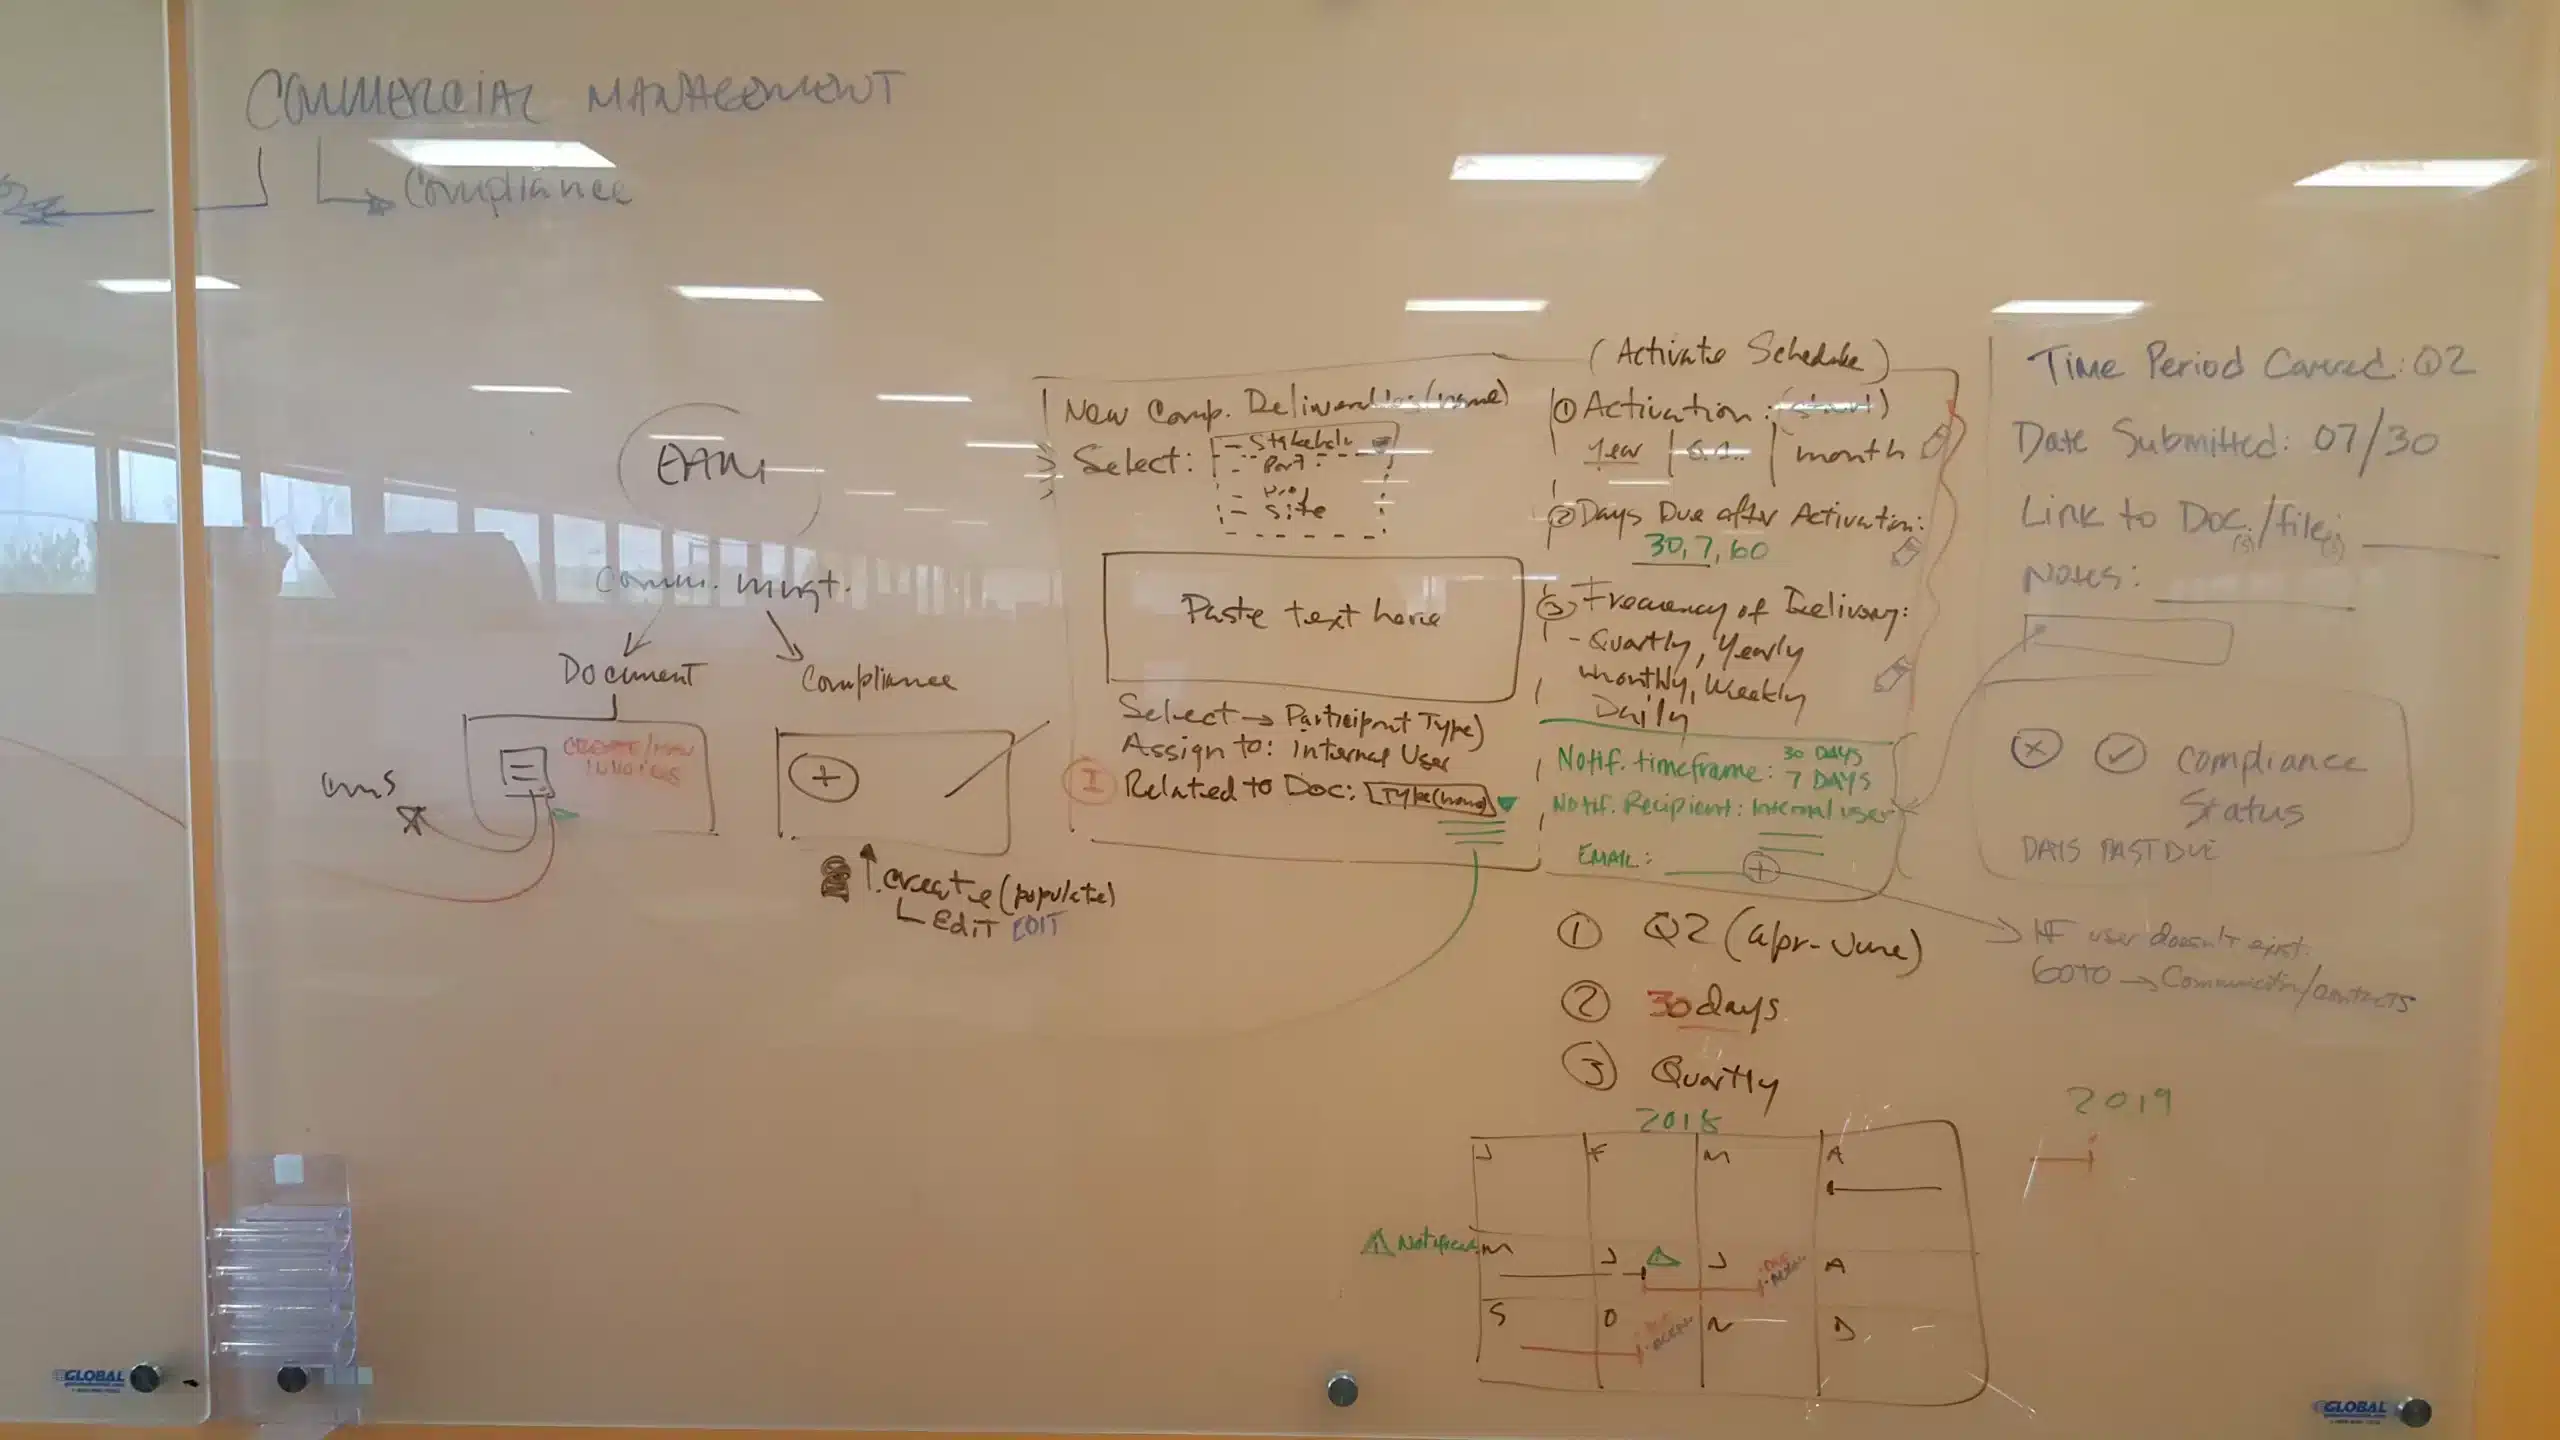 COMMERCIAL MANAGEMENT
Compliance
Comm. mngt.
Document
Compliance
CREATE/MAN
INVOICES
+
create (populate)
Edit EDIT
New Comp. Deliverables (name)
Select:
- Stakehol
- Port
- Site
Paste text here
Select → Participant Type)
Assign to: Internal User
I Related to Doc: Type (name)
(Activate Schedule)
① Activation: (start)
Year | | month
② Days Due after Activation:
30, 7, 60
③ Frequency of Delivery:
- Quartly, Yearly
Monthly, Weekly
Daily
Notif. timeframe: 30 DAYS
7 DAYS
Notif. Recipient: Internal user
EMAIL:
+
① Q2 (apr-June)
② 30 days
③ Quartly
2018
J F M A
Notified
M J J A
S O N D
Time Period Covered: Q2
Date Submitted: 07/30
Link to Doc(s)/file(s)
Notes:
Compliance
Status
DAYS PAST DUE
IF user doesn't exist.
GOTO → Communication/contacts
2019
GLOBAL
GLOBAL